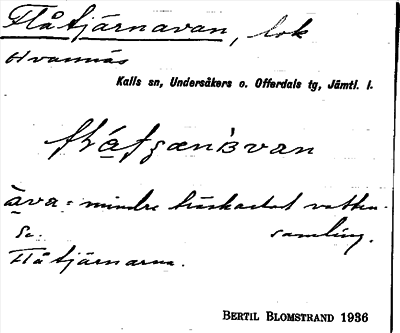 Flåtjärnavan, lok
Hvannäs
Kalls sn, Undersåkers o. Offerdals tg, Jämtl. l.
ava = mindre träskartat vatten-
Se. samling.
Flåtjärnarna.
BERTIL BLOMSTRAND 1936